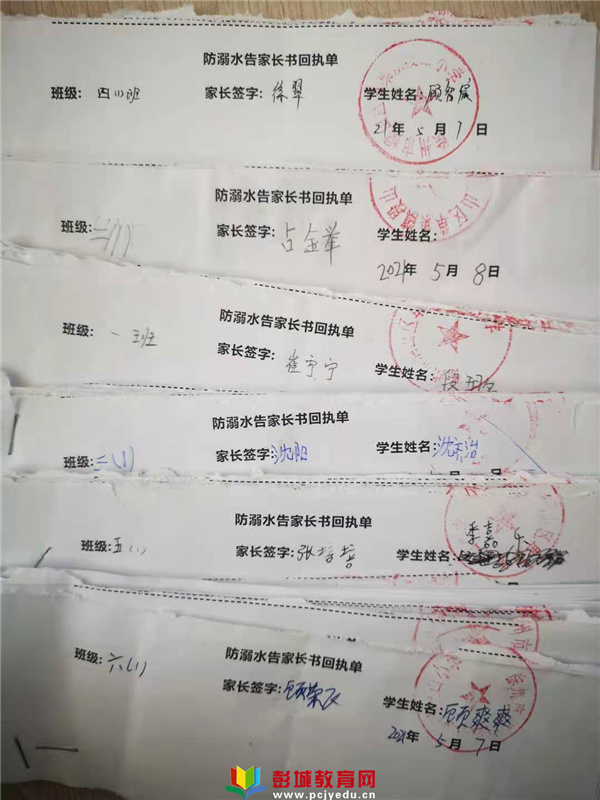 防溺水告家长书回执单
班级: 四(1)班 家长签字: 徐翠 学生姓名: 顾智宸
21年 5月7日
防溺水告家长书回执单
班级: 三(1) 家长签字: 占金举 学生姓名:
2021年 5月8日
防溺水告家长书回执单
班级: 一班 家长签字: 崔宁宁 学生姓名: 段
防溺水告家长书回执单
班级: 二(1) 家长签字: 沈阳 学生姓名: 沈天浩
防溺水告家长书回执单
班级: 五(1) 家长签字: 张培培 学生姓名: 季嘉
防溺水告家长书回执单
班级: 六(1) 家长签字: 顾荣 学生姓名: 顾爽爽
2021年 5月7日
彭城教育网
www.pcjyedu.cn